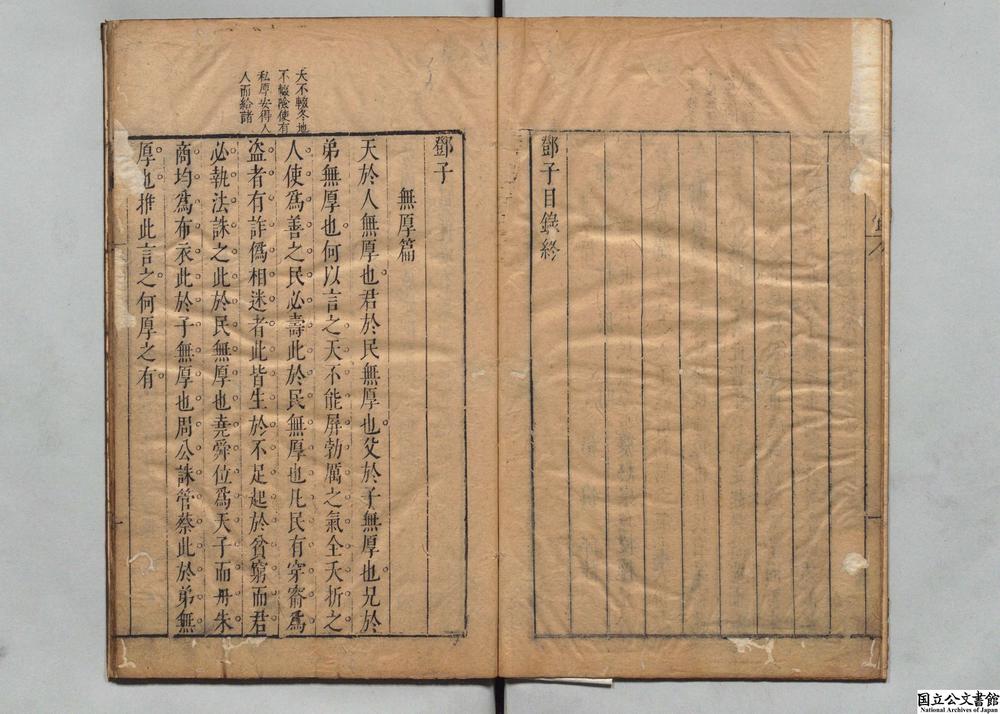 鄧子目錄終
鄧子
無厚篇
天於人無厚也君於民無厚也父於子無厚也兄於
弟無厚也何以言之天不能屏勃厲之氣全夭折之
人使爲善之民必壽此於民無厚也凡民有穿窬爲
盗者有詐偽相迷者此皆生於不足起於貧窮而君
必執法誅之此於民無厚也堯舜位爲天子而丹朱
商均爲布衣此於子無厚也周公誅管蔡此於弟無
厚也推此言之何厚之有
天不輟冬地
不輟險使有
私厚安得人
人而給諸
国立公文書館
National Archives of Japan